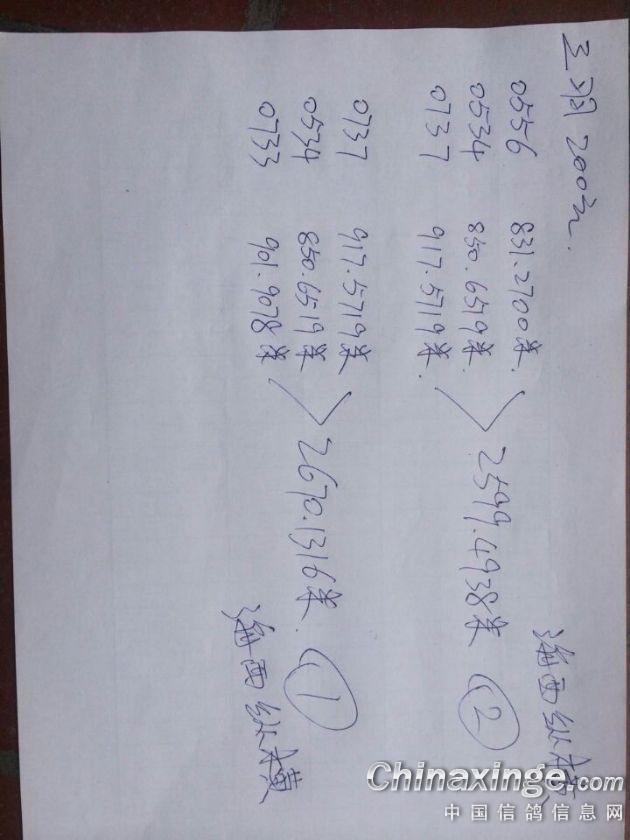 三羽200元.
0556 831.2700米.
0534 850.6519米.
0737 917.5719米.
2599.4938米 ②
海西纵横
0737 917.5719米
0534 850.6519米
0733 901.9078米
2670.1316米. ①
海西纵横
Chinaxinge.com
中国信鸽信息网